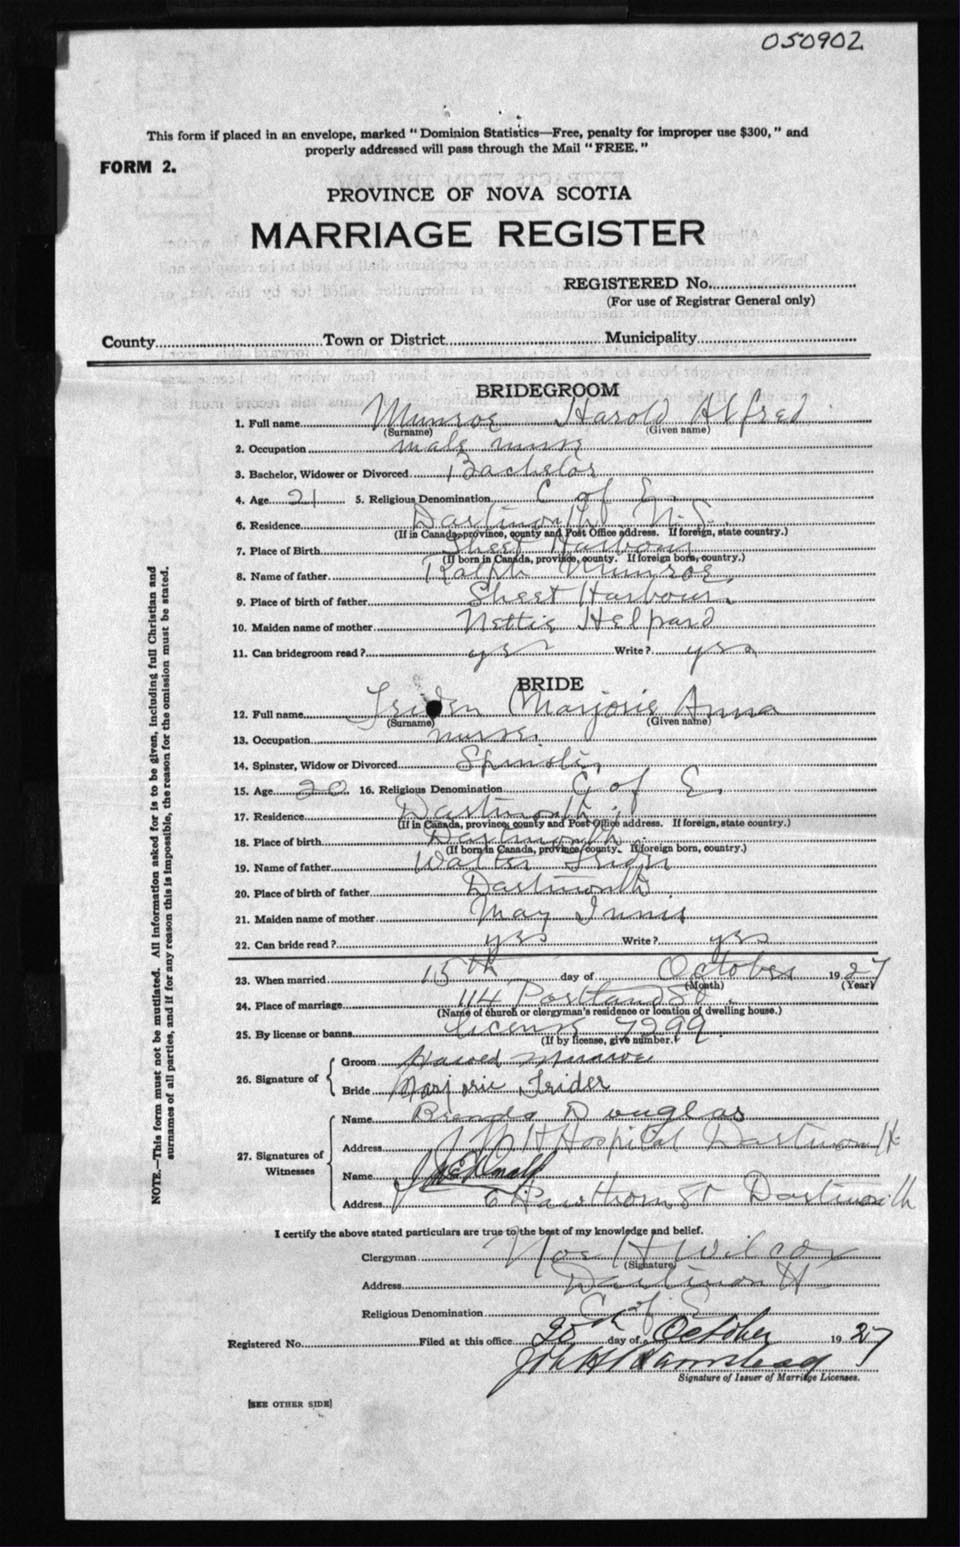 050902
This form if placed in an envelope, marked "Dominion Statistics—Free, penalty for improper use $300," and
properly addressed will pass through the Mail "FREE."
FORM 2.
PROVINCE OF NOVA SCOTIA
MARRIAGE REGISTER
REGISTERED No.
(For use of Registrar General only)
County Town or District Municipality
BRIDEGROOM
1. Full name Munroe Harold Alfred
(Surname) (Given name)
2. Occupation male nurse
3. Bachelor, Widower or Divorced Bachelor
4. Age 21 5. Religious Denomination C of E.
6. Residence Dartmouth N.S.
(If in Canada, province, county and Post Office address. If foreign, state country.)
7. Place of Birth Sheet Harbour
(If born in Canada, province, county. If foreign born, country.)
8. Name of father Ralph Munroe
9. Place of birth of father Sheet Harbour.
10. Maiden name of mother Nettie Helpard
11. Can bridegroom read? yes Write? yes
BRIDE
12. Full name Trider Marjorie Anna
(Surname) (Given name)
13. Occupation nurse.
14. Spinster, Widow or Divorced Spinster
15. Age 20 16. Religious Denomination C of E.
17. Residence Dartmouth
(If in Canada, province, county and Post Office address. If foreign, state country.)
18. Place of birth Dartmouth
(If born in Canada, province, county. If foreign born, country.)
19. Name of father Walter Trider
20. Place of birth of father Dartmouth
21. Maiden name of mother May Innis
22. Can bride read? yes Write? yes
23. When married 15th day of October 1927
(Month) (Year)
24. Place of marriage 114 Portland St.
(Name of church or clergyman's residence or location of dwelling house.)
25. By license or banns License 7299
(If by license, give number.)
26. Signature of
Groom Harold Munroe
Bride Marjorie Trider
27. Signatures of Witnesses
Name Brenda Douglas
Address Hospital Dartmouth
Name
Address 6 Hawthorn St Dartmouth
I certify the above stated particulars are true to the best of my knowledge and belief.
Clergyman Noel H Wilcox
(Signature)
Address Dartmouth
Religious Denomination C of E
Registered No. Filed at this office 20th day of October 1927
Signature of Issuer of Marriage Licenses.
[SEE OTHER SIDE]
NOTE.—This form must not be mutilated. All information asked for is to be given, including full Christian and
surnames of all parties, and if for any reason this is impossible, the reason for the omission must be stated.